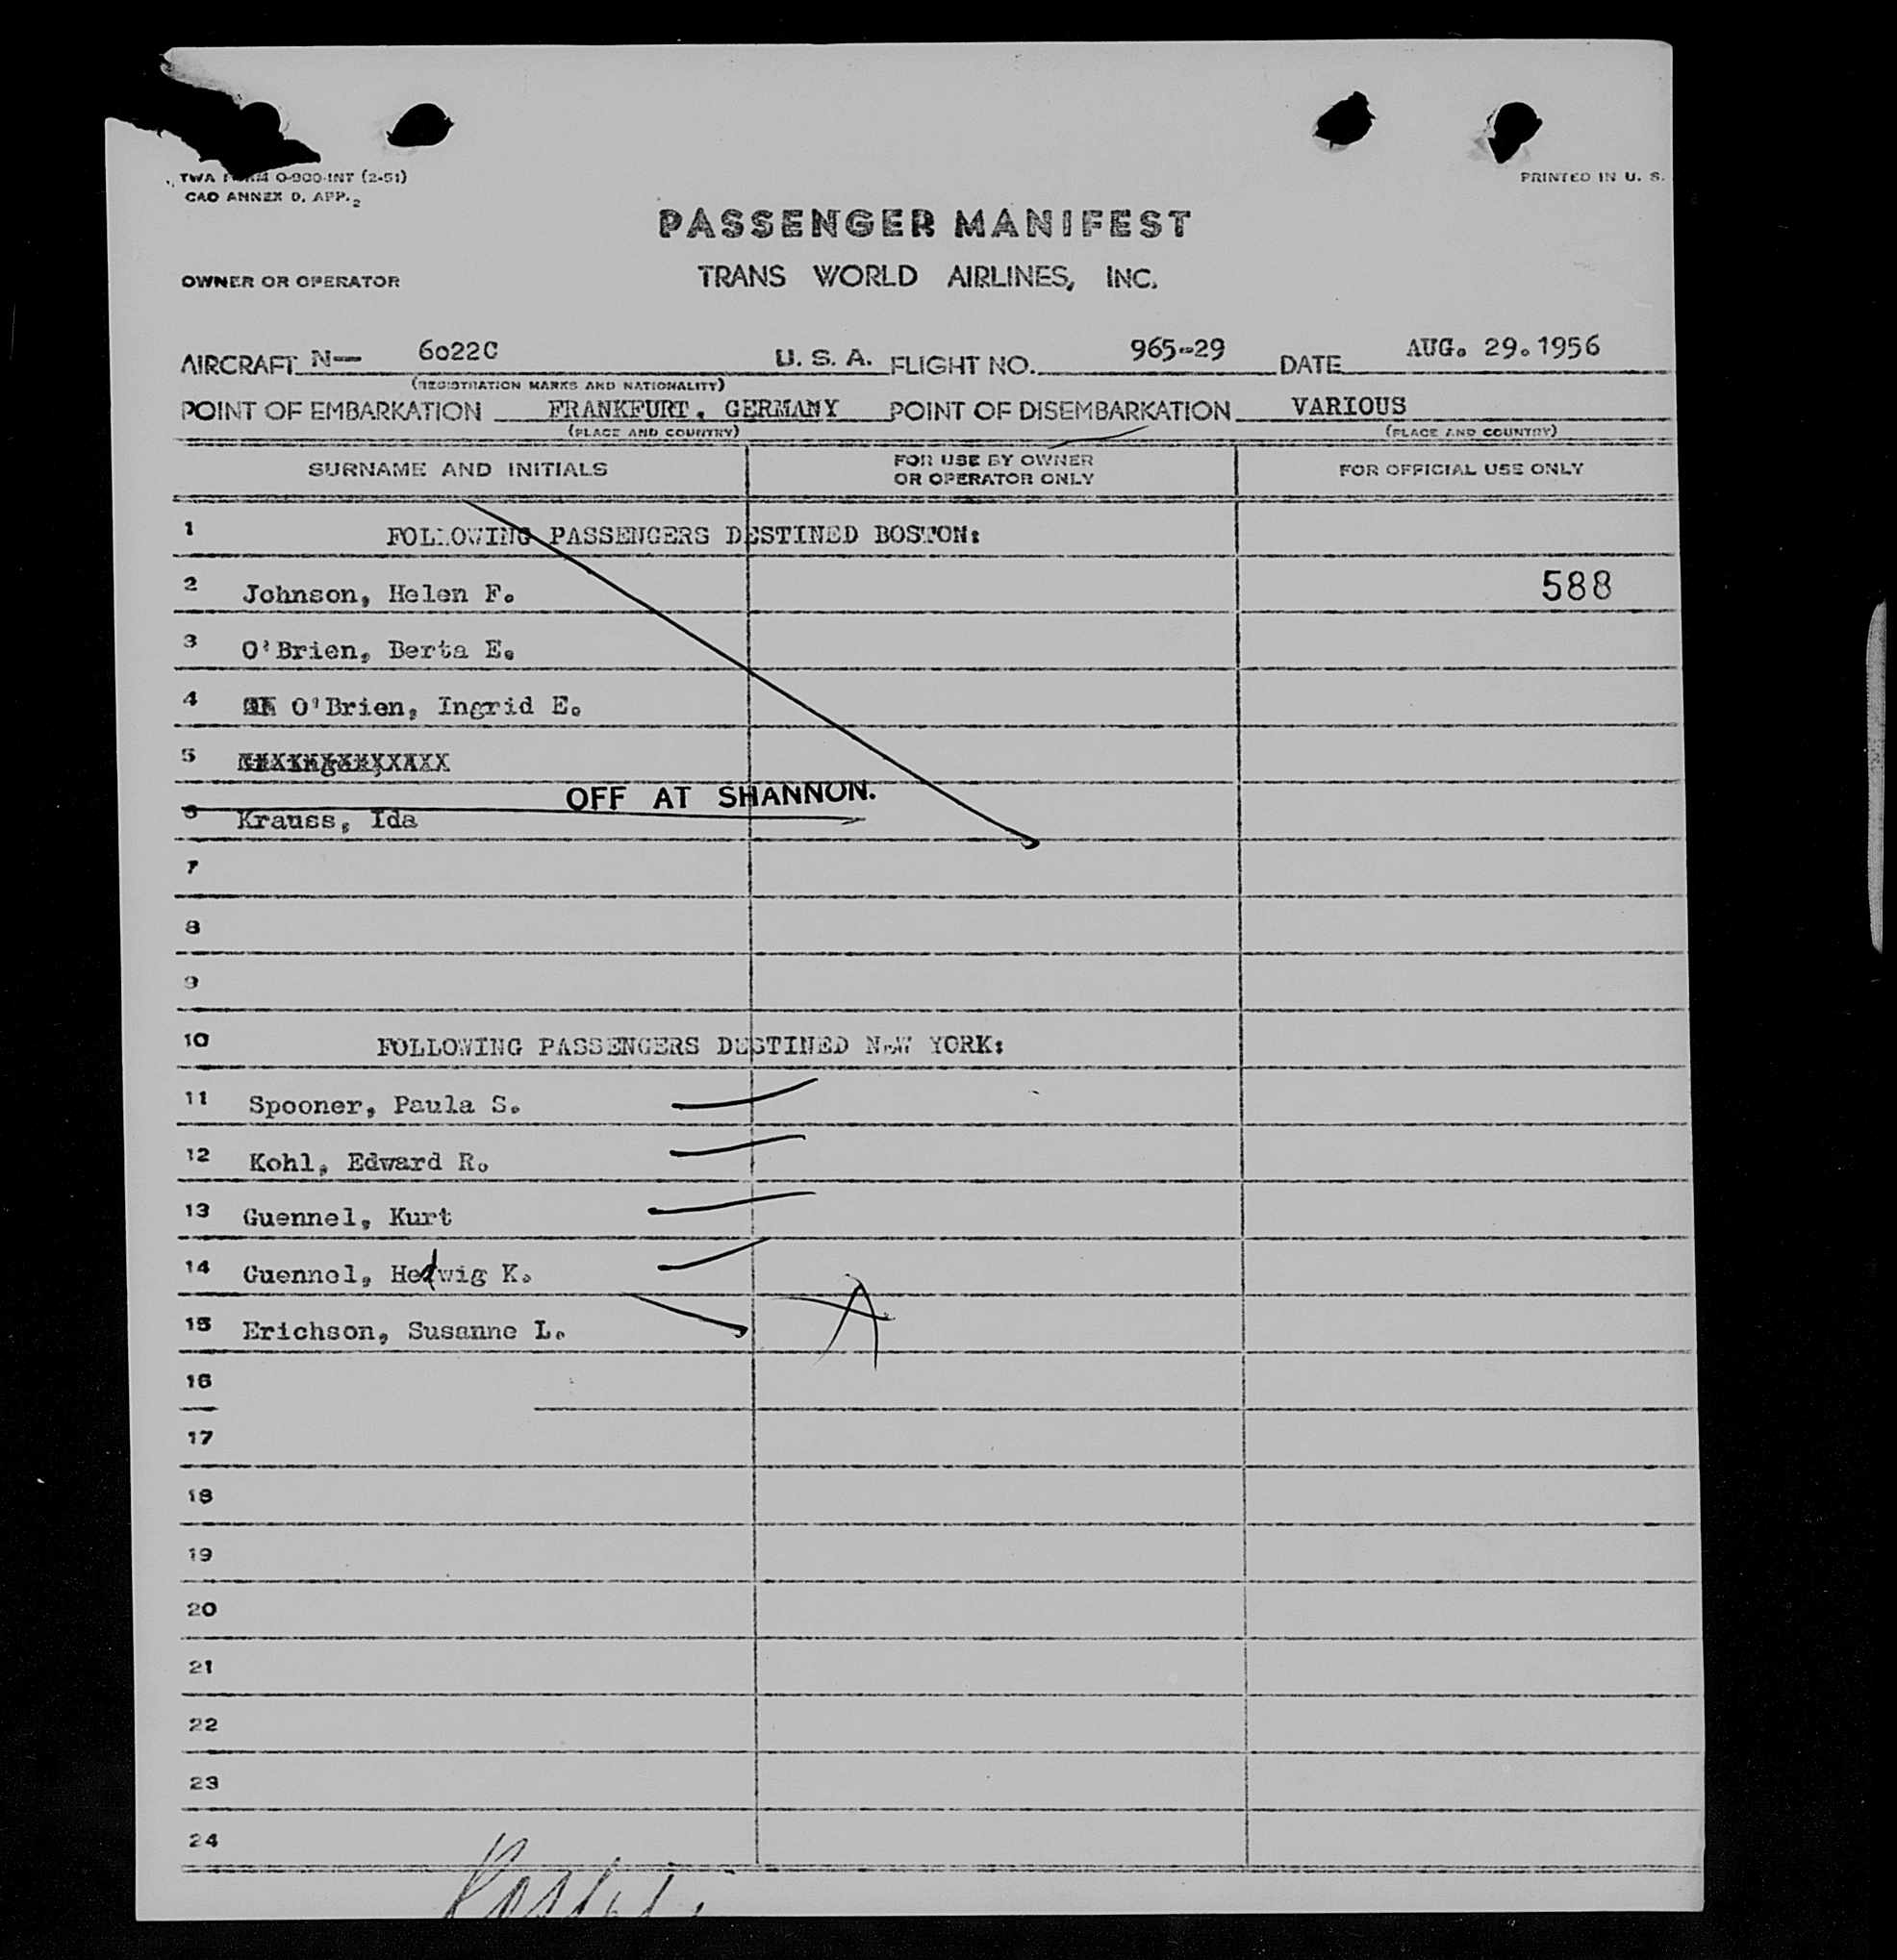 TWA FORM O-900-INT (2-51)
CAO ANNEX D, APP. 2
PRINTED IN U. S.
PASSENGER MANIFEST
OWNER OR OPERATOR
TRANS WORLD AIRLINES, INC.
AIRCRAFT N— 6022C U. S. A. FLIGHT NO. 965-29 DATE AUG. 29.1956
(REGISTRATION MARKS AND NATIONALITY)
POINT OF EMBARKATION FRANKFURT, GERMANY POINT OF DISEMBARKATION VARIOUS
(PLACE AND COUNTRY) (PLACE AND COUNTRY)
SURNAME AND INITIALS FOR USE BY OWNER OR OPERATOR ONLY FOR OFFICIAL USE ONLY
1 FOLLOWING PASSENGERS DESTINED BOSTON:
2 Johnson, Helen F. 588
3 O'Brien, Berta E.
4 O'Brien, Ingrid E.
5
OFF AT SHANNON.
6 Krauss, Ida
7
8
9
10 FOLLOWING PASSENGERS DESTINED NEW YORK:
11 Spooner, Paula S.
12 Kohl, Edward R.
13 Guennel, Kurt
14 Guennel, Hedwig K.
15 Erichson, Susanne L.
16
17
18
19
20
21
22
23
24